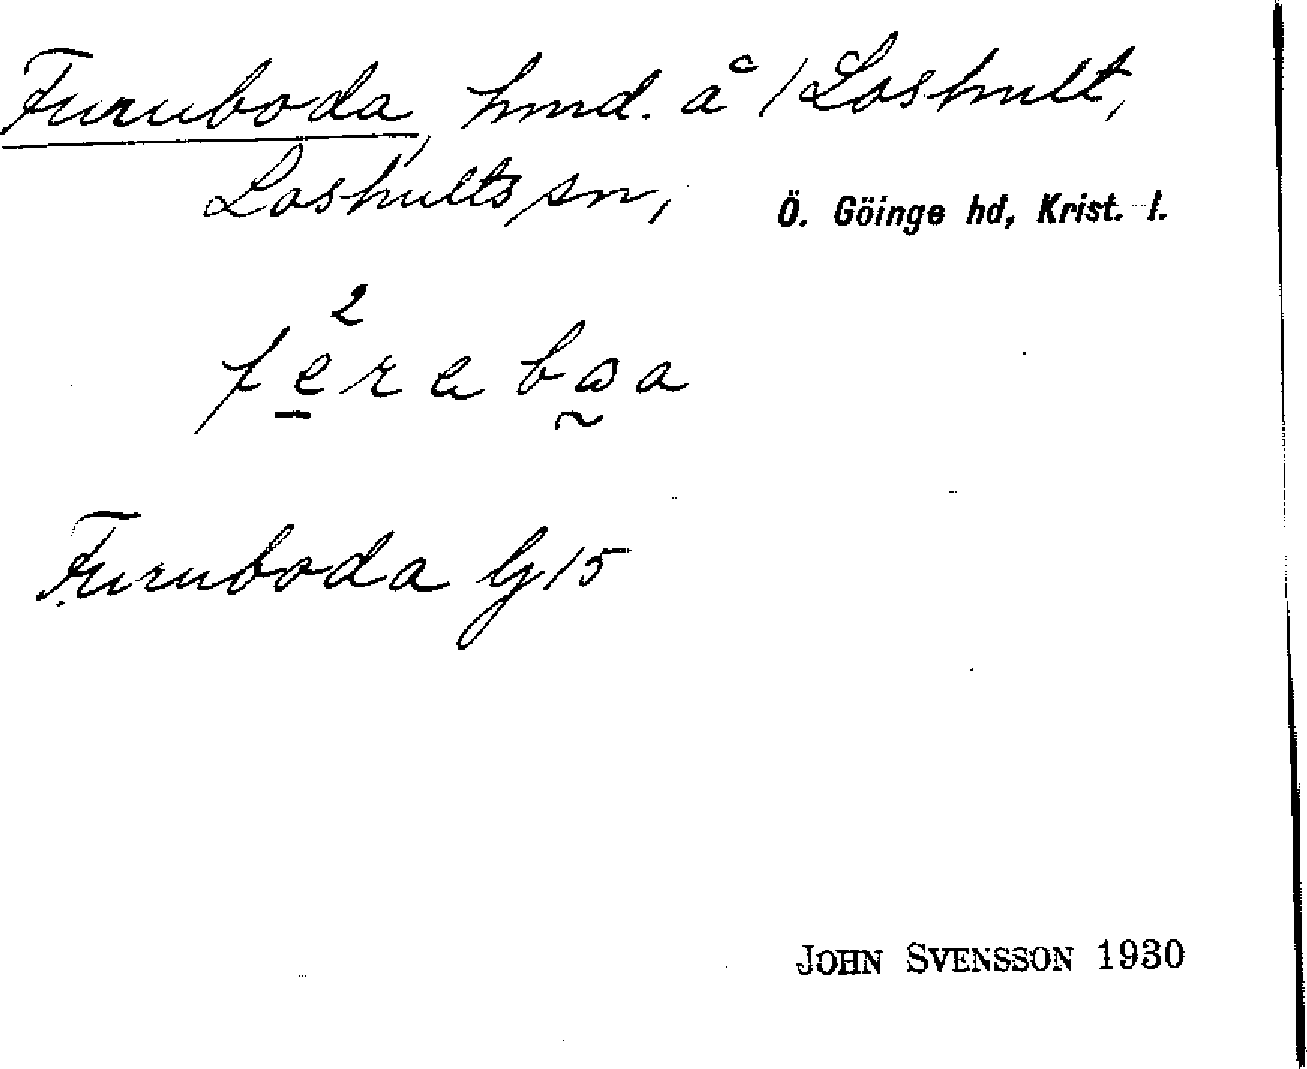 Furuboda, hmd. å /Loshult,
Loshults sn, Ö. Göinge hd, Krist. l.
Furuboda G15
JOHN SVENSSON 1930